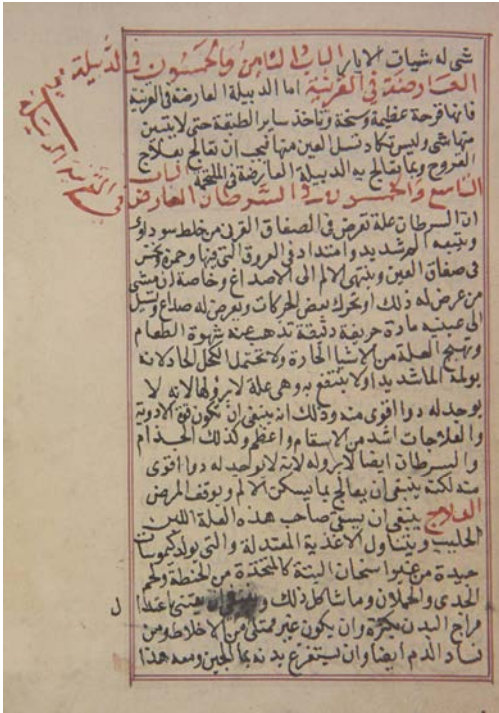 شى له شبيات الابار الباب الثامن والخمسون فى الدبيلة
العارضة فى القرنية اما الدبيلة العارضة فى القرنية
فانها قرحة عظيمة وسخة وتاخذ ساير الطبقة حتى لا يتبين
منها شى وليس تكاد تسل العين منها فيجب ان تعالج بعلاج
القروح وبما يعالج به الدبيلة العارضة فى الملتحمة الباب
التاسع والخمسون فى السرطان العارض فى القرنية
ان السرطان علة تعرض فى الصفاق القرنى من خلط سوداوى
ويتبعه الم شديد وامتداد فى العروق التى فيها وحمرة ونخس
فى صفاق العين وينتهى الالم الى الاصداغ وخاصة ان مشى
من عرض له ذلك او تحرك بعض الحركات ويعرض له صداع ويسيل
الى عينيه مادة حريفة دقيقة تذهب عنه شهوة الطعام
وتهيج العلة من الاشيا الحارة ولا تحتمل الكحل الحاد لانه
يولمه الما شديدا ولا ينتفع به وهى علة لا برو لها لانه لا
يوجد له دوا اقوى منه وذلك انه ينبغى ان تكون قوة الادوية
والعلاجات اشد من الاسقام واعظم وكذلك الجذام
والسرطان ايضا لا برو له لانه لا يوجد له دوا اقوى
منه لكنه ينبغى ان يعالج بما يسكن الالم ويوقف المرض
العلاج ينبغى ان يسقى صاحب هذه العلة اللبن
الحليب ويتناول الاغذية المعتدلة والتى يولد كيموسات
جيدة من غير اسخان البتة كالمتخذة من الحنطة ولحم
الجدى والحملان وما شاكل ذلك يعتنى باعتدال
مزاج البدن بكثرة وان يكون غير ممتلى من الاخلاط ومن
فساد الدم ايضا وان يستفرغ بدنه بما الجبن ومعه هذا